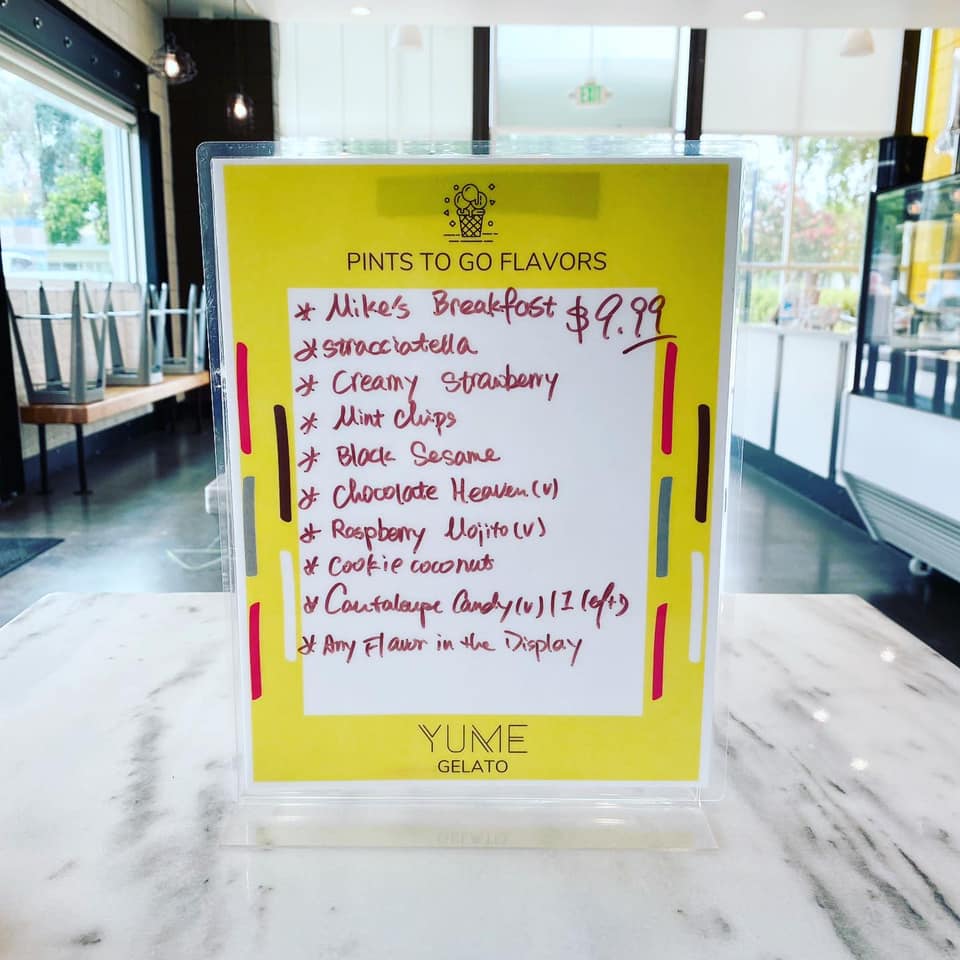 PINTS TO GO FLAVORS
* Mike's Breakfast $9.99
* Stracciatella
* Creamy Strawberry
* Mint Chips
* Black Sesame
* Chocolate Heaven (v)
* Raspberry Mojito (v)
* Cookie coconut
* Cantaloupe Candy (v) | 1 left)
* Any Flavor in the Display
YUME
GELATO